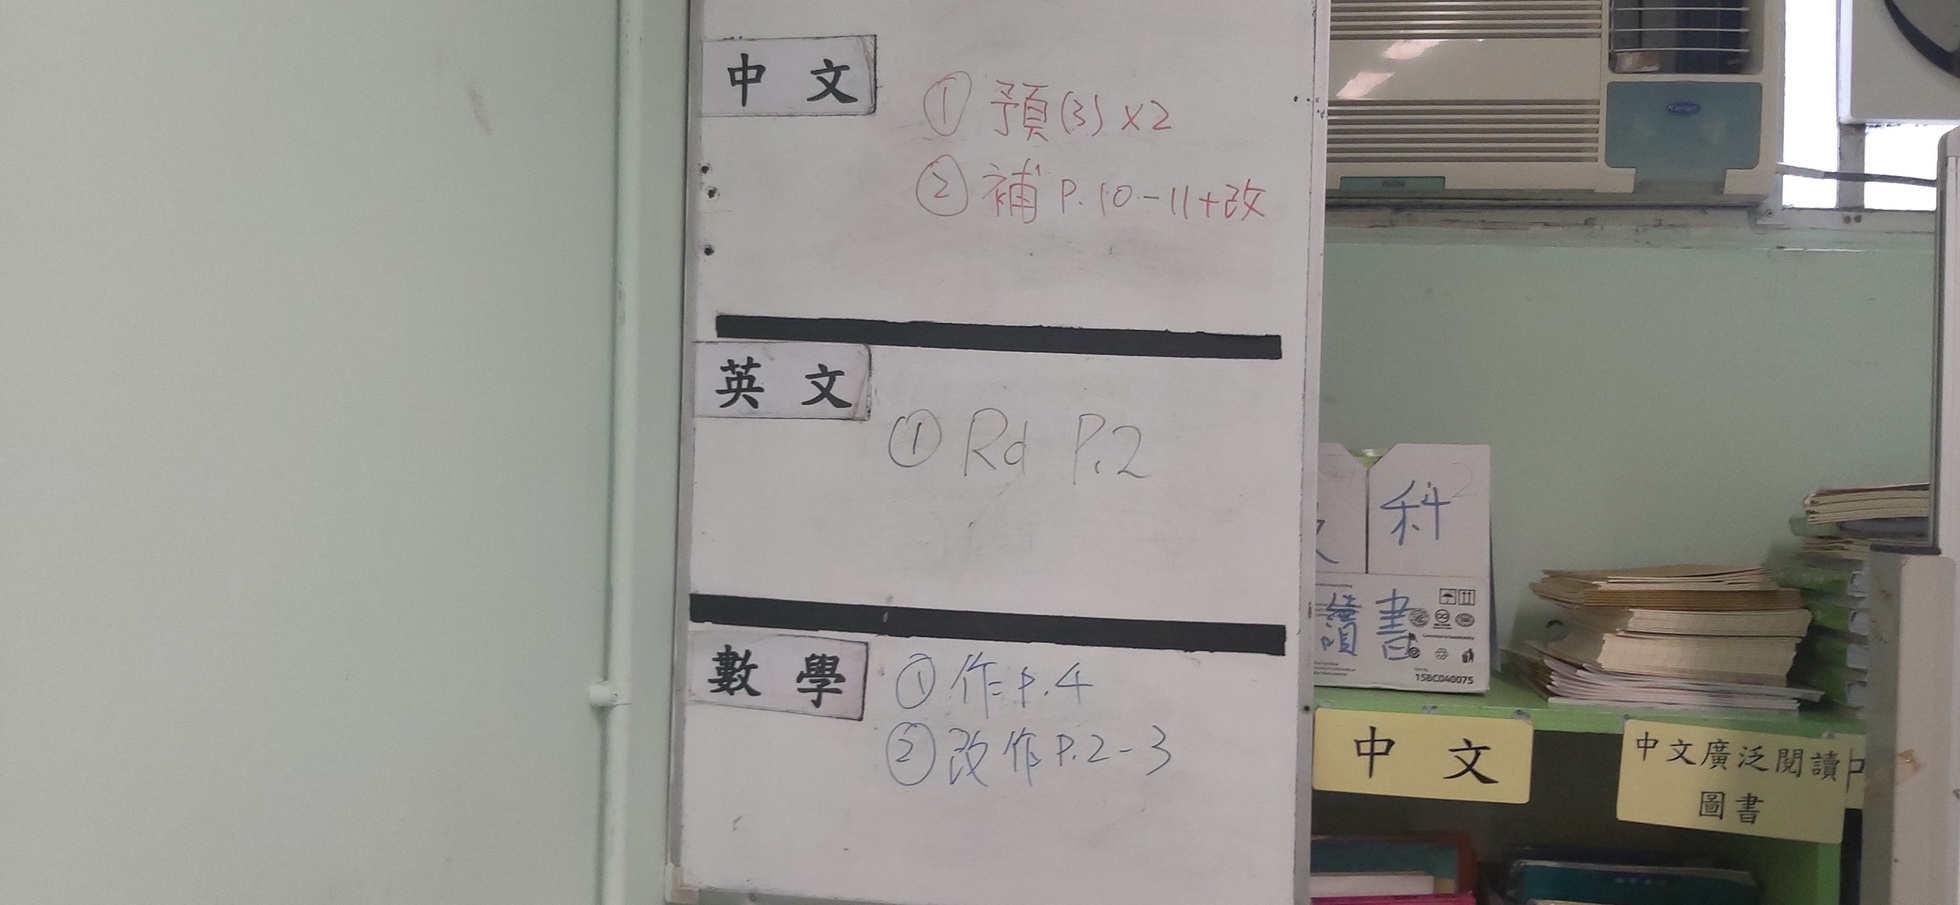 中文
① 預(3) x2
② 補 P.10-11+改
英文
① Rd P.2
數學
① 作 P.4
② 改作 P.2-3
科
讀書
158C040075
中文
中文廣泛閱讀
圖書